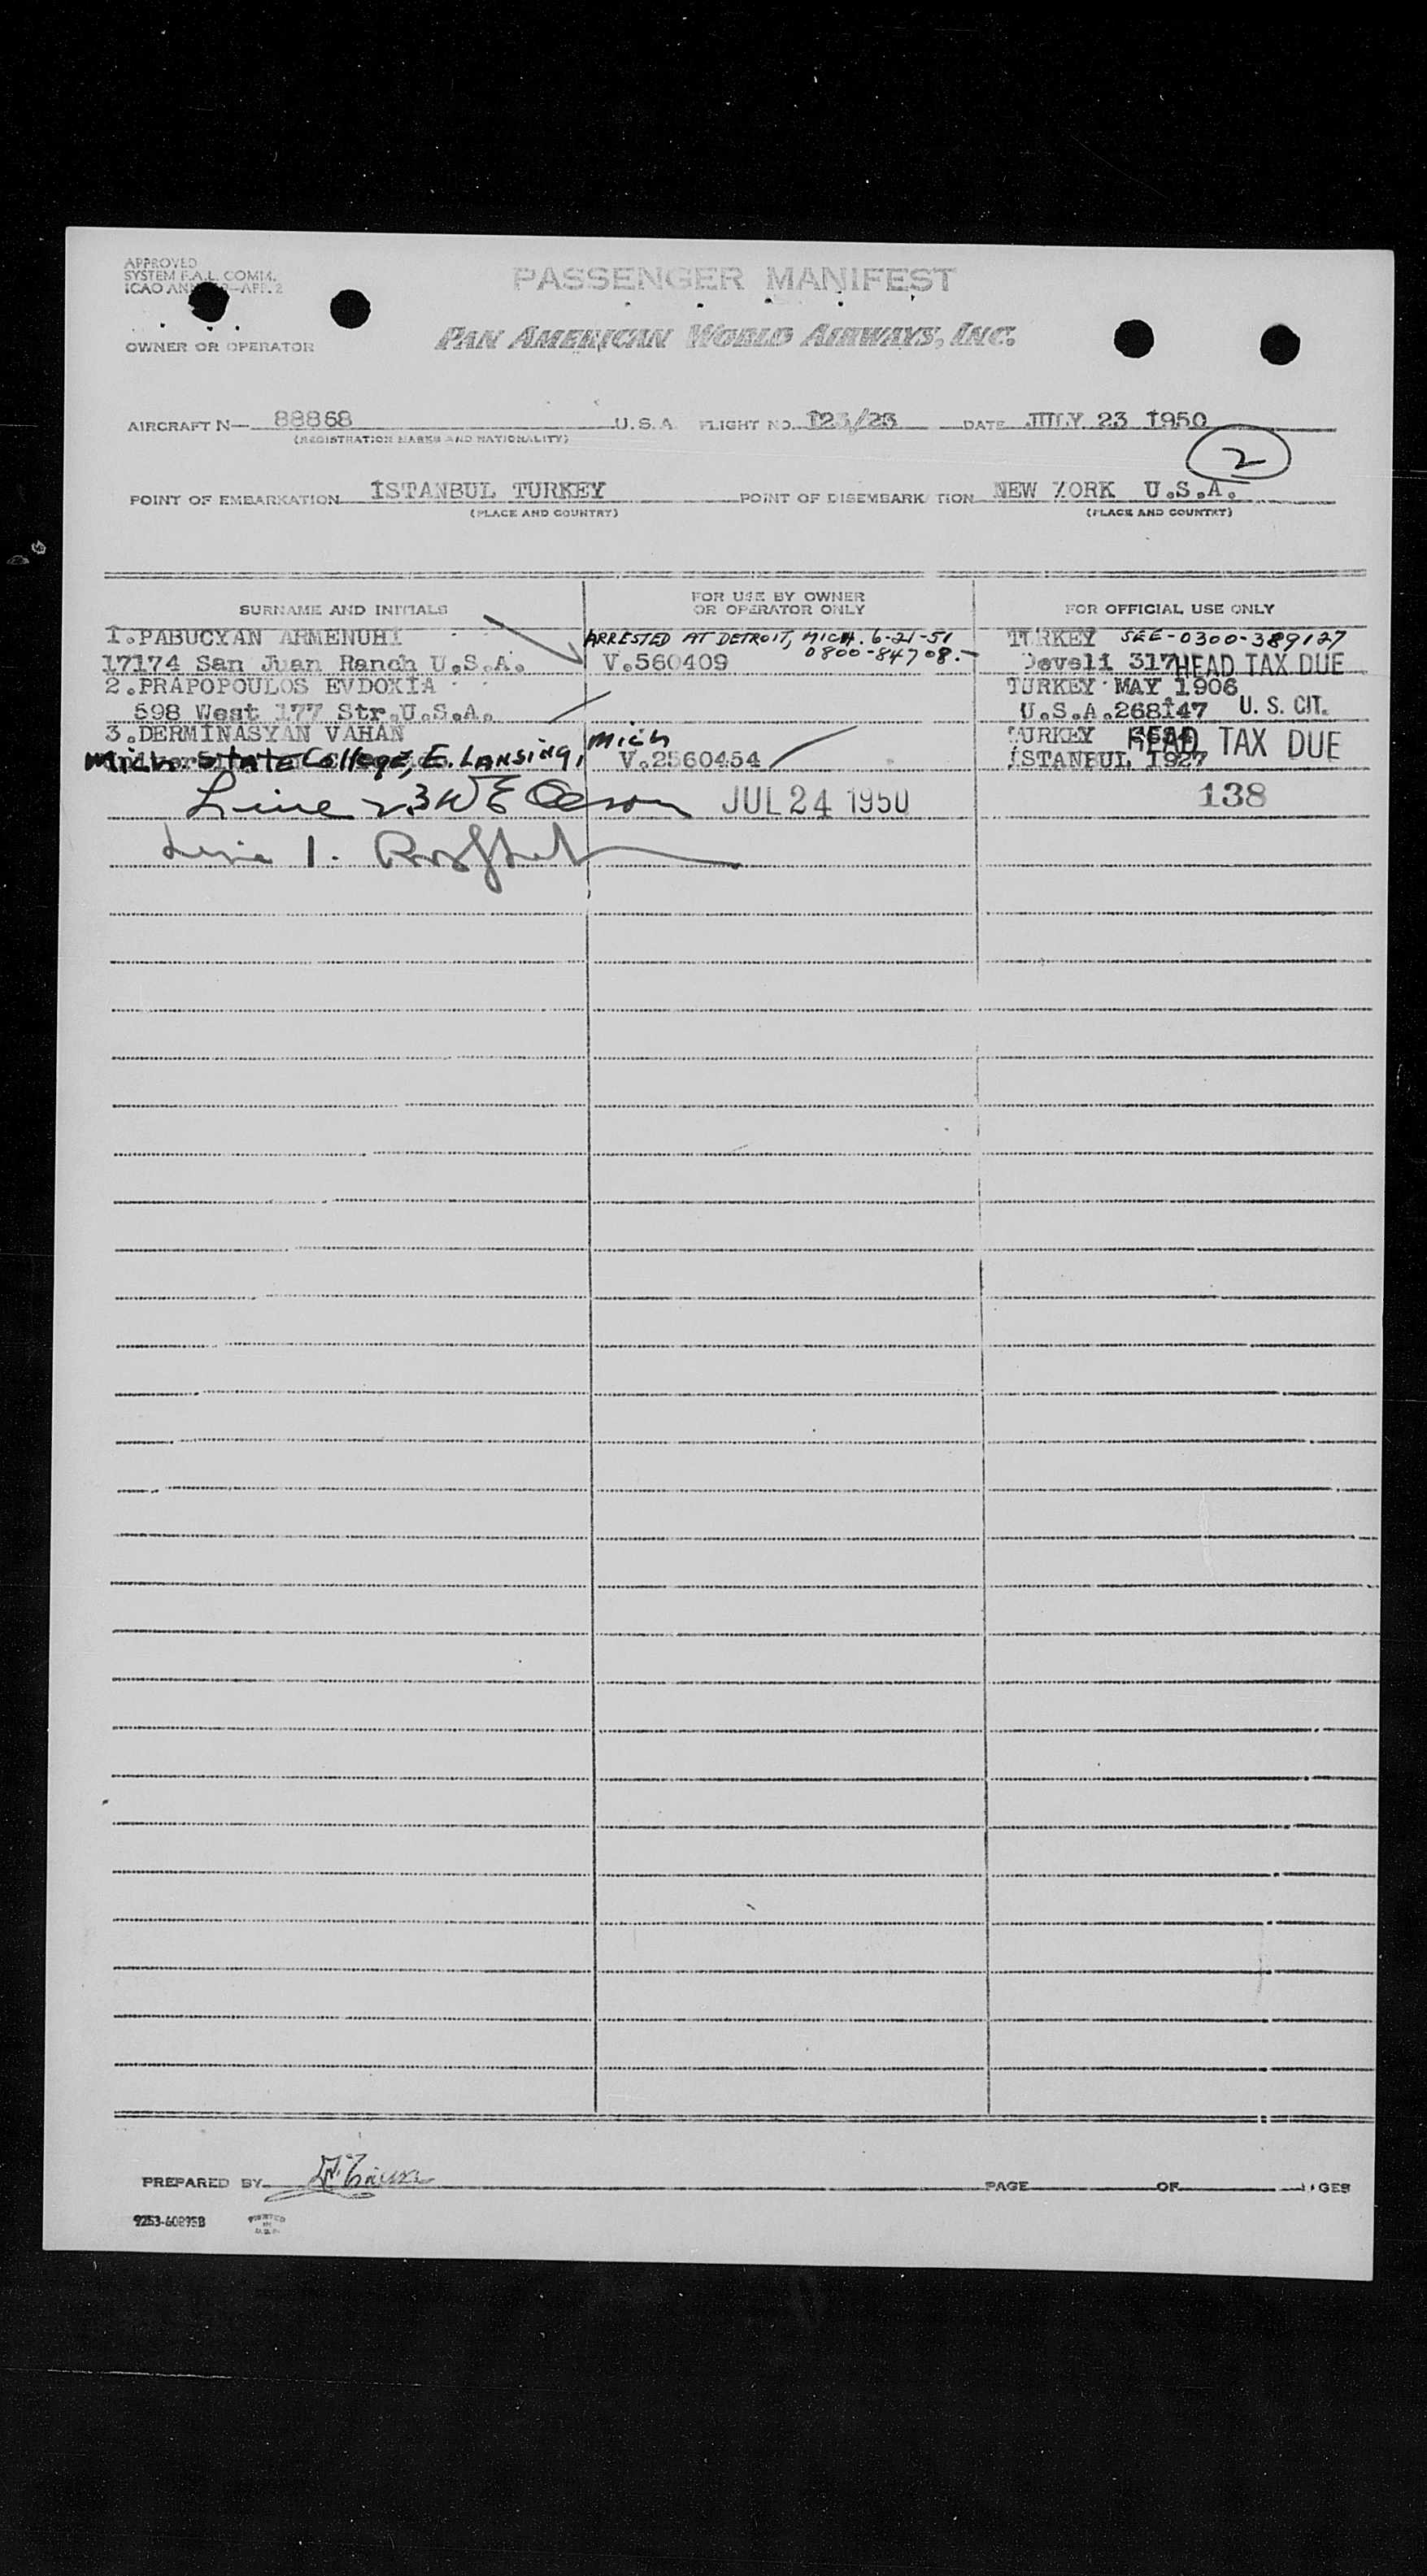 APPROVED
SYSTEM F.A.L. COMM.
ICAO APP. 2
PASSENGER MANIFEST
OWNER OR OPERATOR PAN AMERICAN WORLD AIRWAYS, INC.
AIRCRAFT N— 88868 U.S.A. FLIGHT NO. DATE JULY 23 1950
(REGISTRATION MARKS AND NATIONALITY)
2
POINT OF EMBARKATION İSTANBUL TURKEY POINT OF DISEMBARK TION NEW YORK U.S.A.
(PLACE AND COUNTRY) (PLACE AND COUNTRY)
SURNAME AND INITIALS FOR USE BY OWNER OR OPERATOR ONLY FOR OFFICIAL USE ONLY
1.PABUCYAN ARMENUHI ARRESTED AT DETROIT, MICH. 6-21-51 TURKEY SEE-0300-389127
0800-84708.-
17174 San Juan Ranch U.S.A. V.560409 Develi 317 HEAD TAX DUE
2.PRAPOPOULOS EVDOXİA TURKEY MAY 1906
598 West 177 Str.U.S.A. U.S.A.268147 U. S. CIT.
3.DERMİNASYAN VAHAN TURKEY HEAD TAX DUE
Mich. State College, E. LANSING, Mich V.2560454 İSTANBUL 1927
Line 2 3 W E JUL 24 1950 138
Line 1.
PREPARED BY PAGE OF GES
9253-60895B PRINTED IN U.S.A.